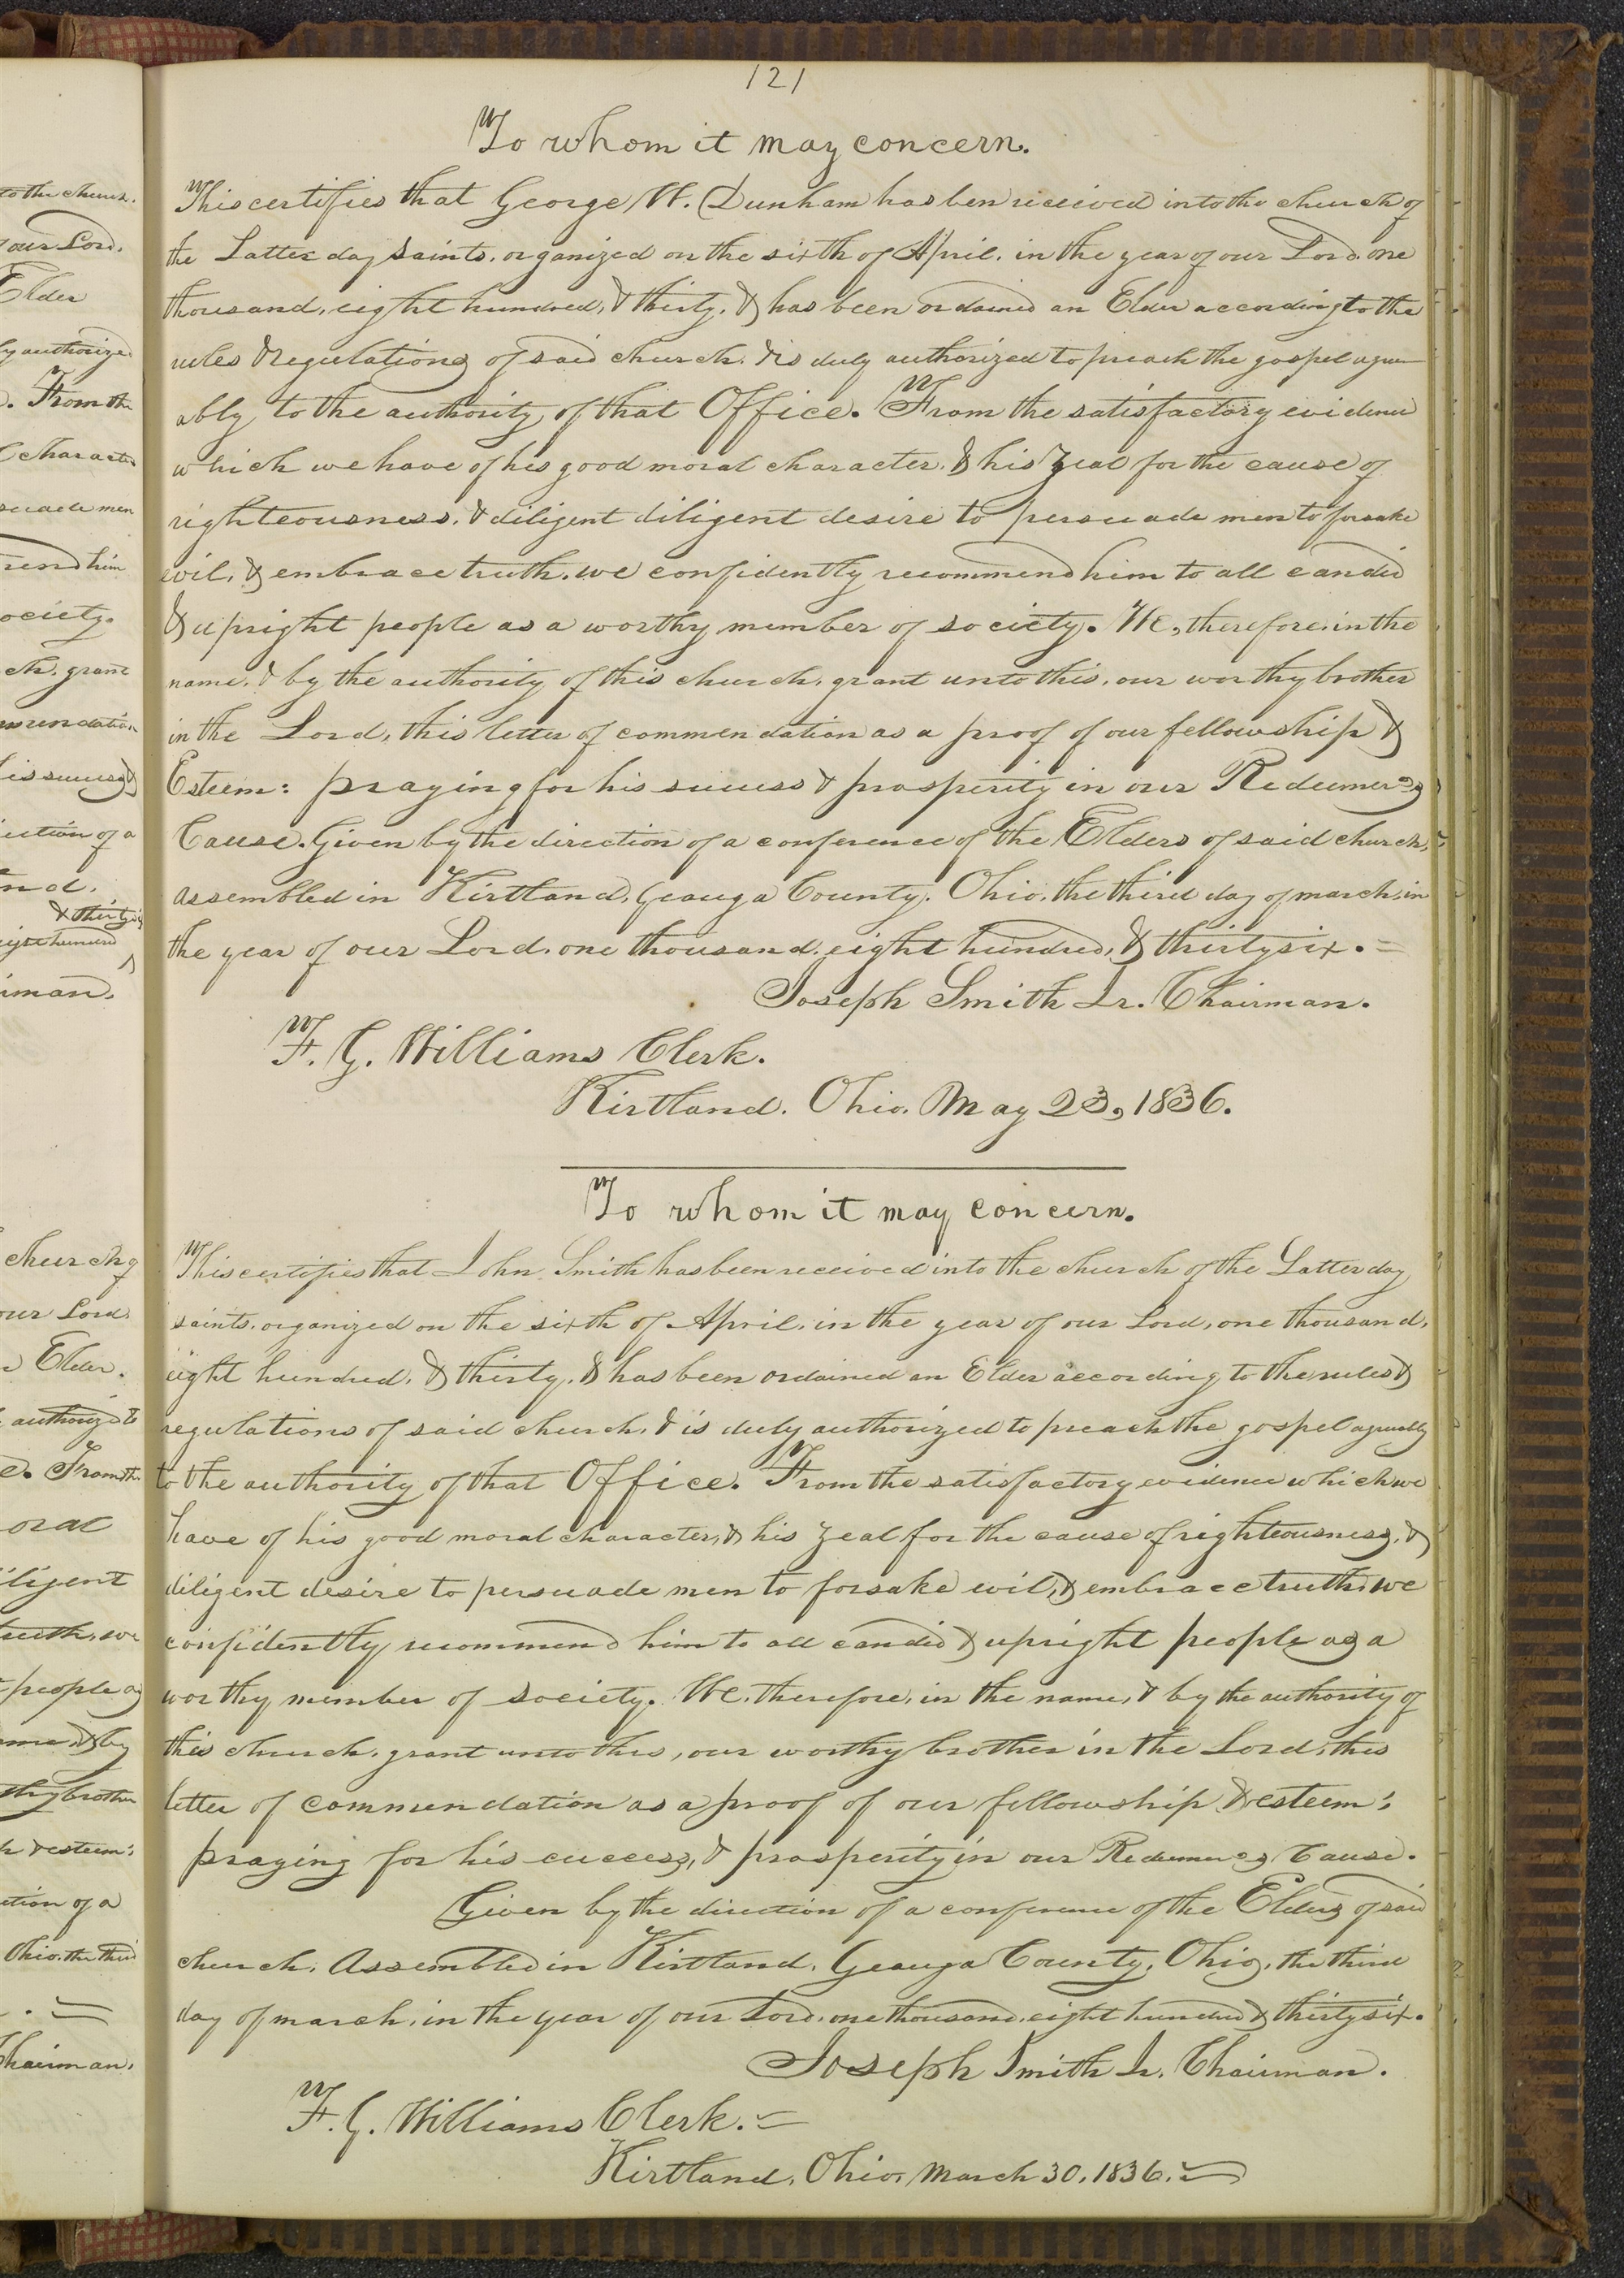 121
To whom it may concern.
This certifies that George W. Dunham has ben received into the church of
the Latter day saints. organized on the sixth of April. in the year of our Lord. one
thousand. eight hundred, & thirty. & has been ordained an Elder according to the
rules & Regulations of said church. & is duly authorized to preach the gospel agree
ably to the authority of that Office. From the satisfactory evidence
which we have of his good moral character. & his zeal for the cause of
righteousness. & diligent diligent desire to persuade men to forsake
evil. & embrace truth. we confidently recommend him to all candid
& upright people as a worthy member of society. We, therefore. in the
name. & by the authority of this church. grant unto this. our worthy brother
in the Lord, this letter of commendation as a proof of our fellowship &
Esteem: praying for his success & prosperity in our Redeemers
Cause. Given by the direction of a conference of the Elders of said church.
assembled in Kirtland, Geauga County. Ohio. the third day of march. in
the year of our Lord. one thousand. eight hundred, & thirty six. =
Joseph Smith Jr. Chairman.
F. G. Williams Clerk.
Kirtland. Ohio. May 23, 1836.
To whom it may concern.
This certifies that John Smith has been received into the church of the Latter day
saints. organized on the sixth of April. in the year of our Lord, one thousand.
eight hundred. & thirty. & has been ordained an Elder according to the rules &
regulations of said church. & is duly authorized to preach the gospel agreeably
to the authority of that Office. From the satisfactory evidence which we
have of his good moral character, & his zeal for the cause of righteousness, &
diligent desire to persuade men to forsake evil, & embrace truth. we
confidently recommend him to all candid & upright people as a
worthy member of society. We. therefore. in the name, & by the authority of
this church. grant unto this, our worthy brother in the Lord. this
letter of commendation as a proof of our fellowship & esteem:
praying for his success, & prosperity in our Redeemers Cause.
Given by the direction of a conference of the Elders of said
church. Assembled in Kirtland. Geauga County, Ohio, the third
day of march. in the year of our Lord. one thousand. eight hundred & thirty six.
Joseph Smith Jr. Chairman.
F. G. Williams Clerk. =
Kirtland. Ohio. March 30. 1836. =